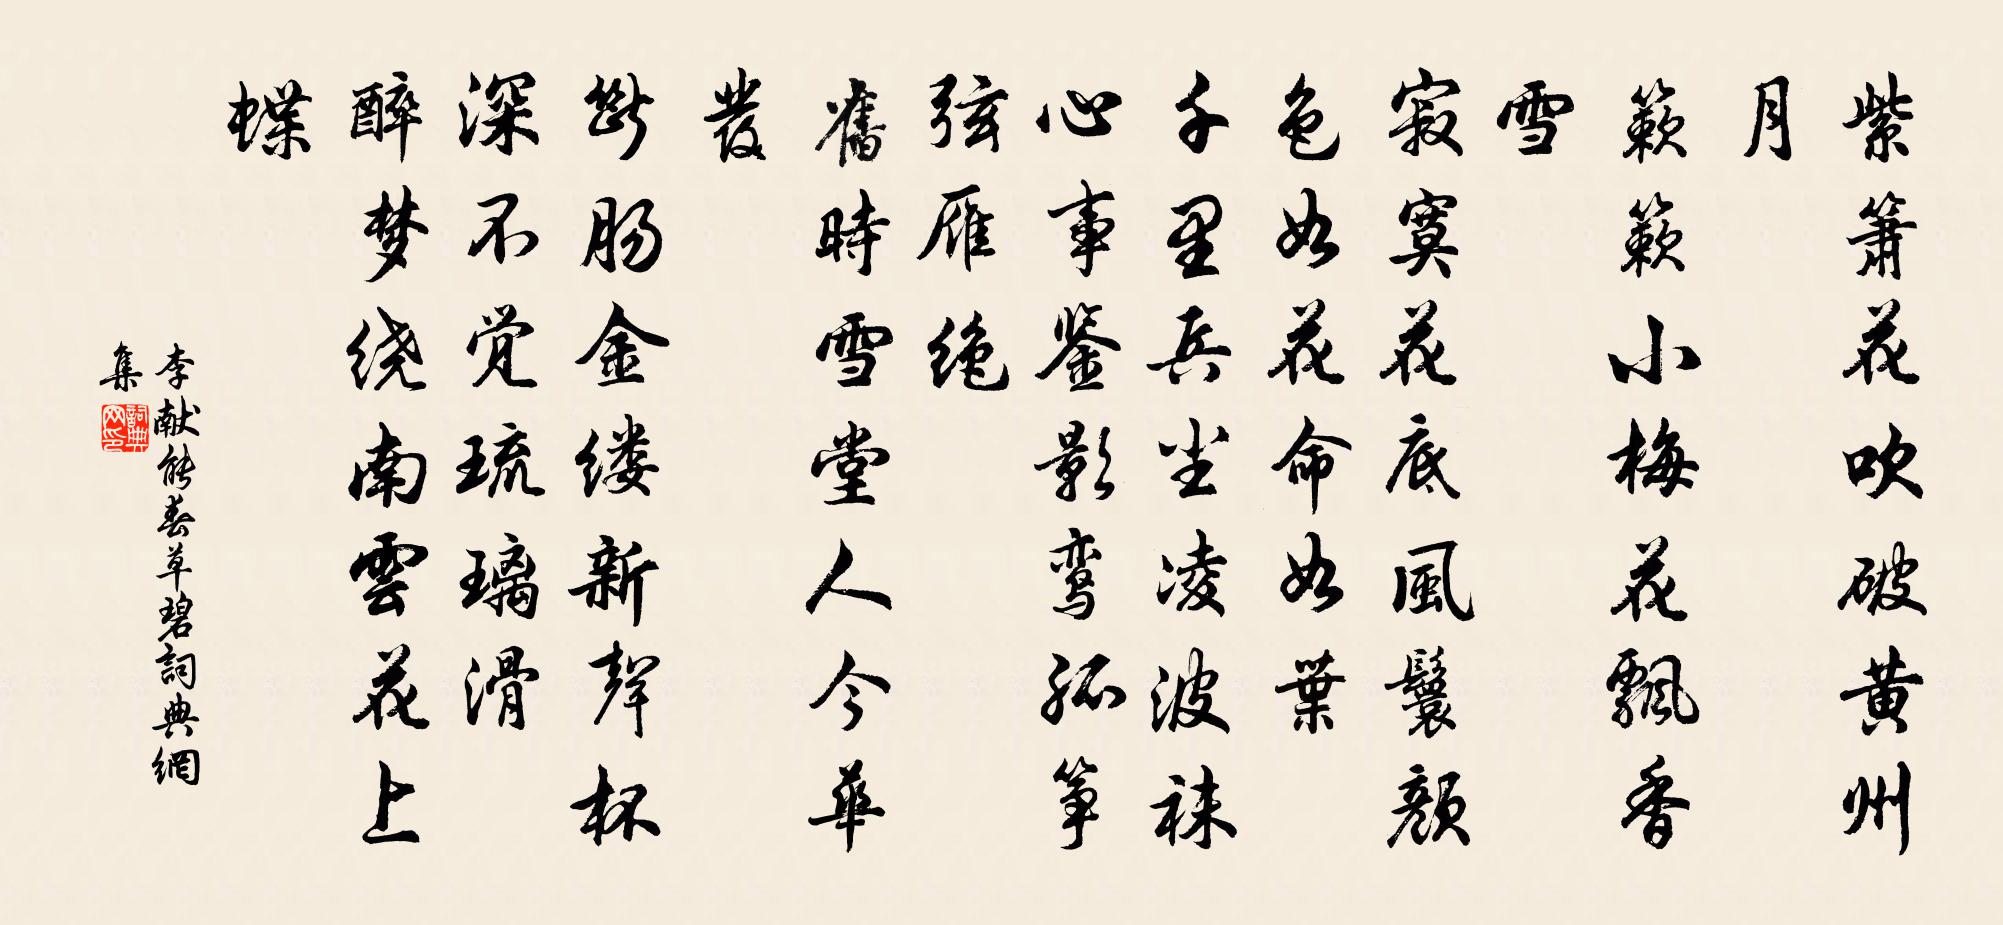 紫箫花吹破黄州
月
簌簌小梅花飄香
雪
寂寞花底風鬟颜
色如花命如葉
千里兵尘凌波袜
心事鉴影鸾孤筝
弦雁绝
舊時雪堂人今華
发
断肠金缕新聲杯
深不觉琉璃滑
醉梦绕南雲花上
蝶
李献能春草碧詞典網
集
詞典
网印